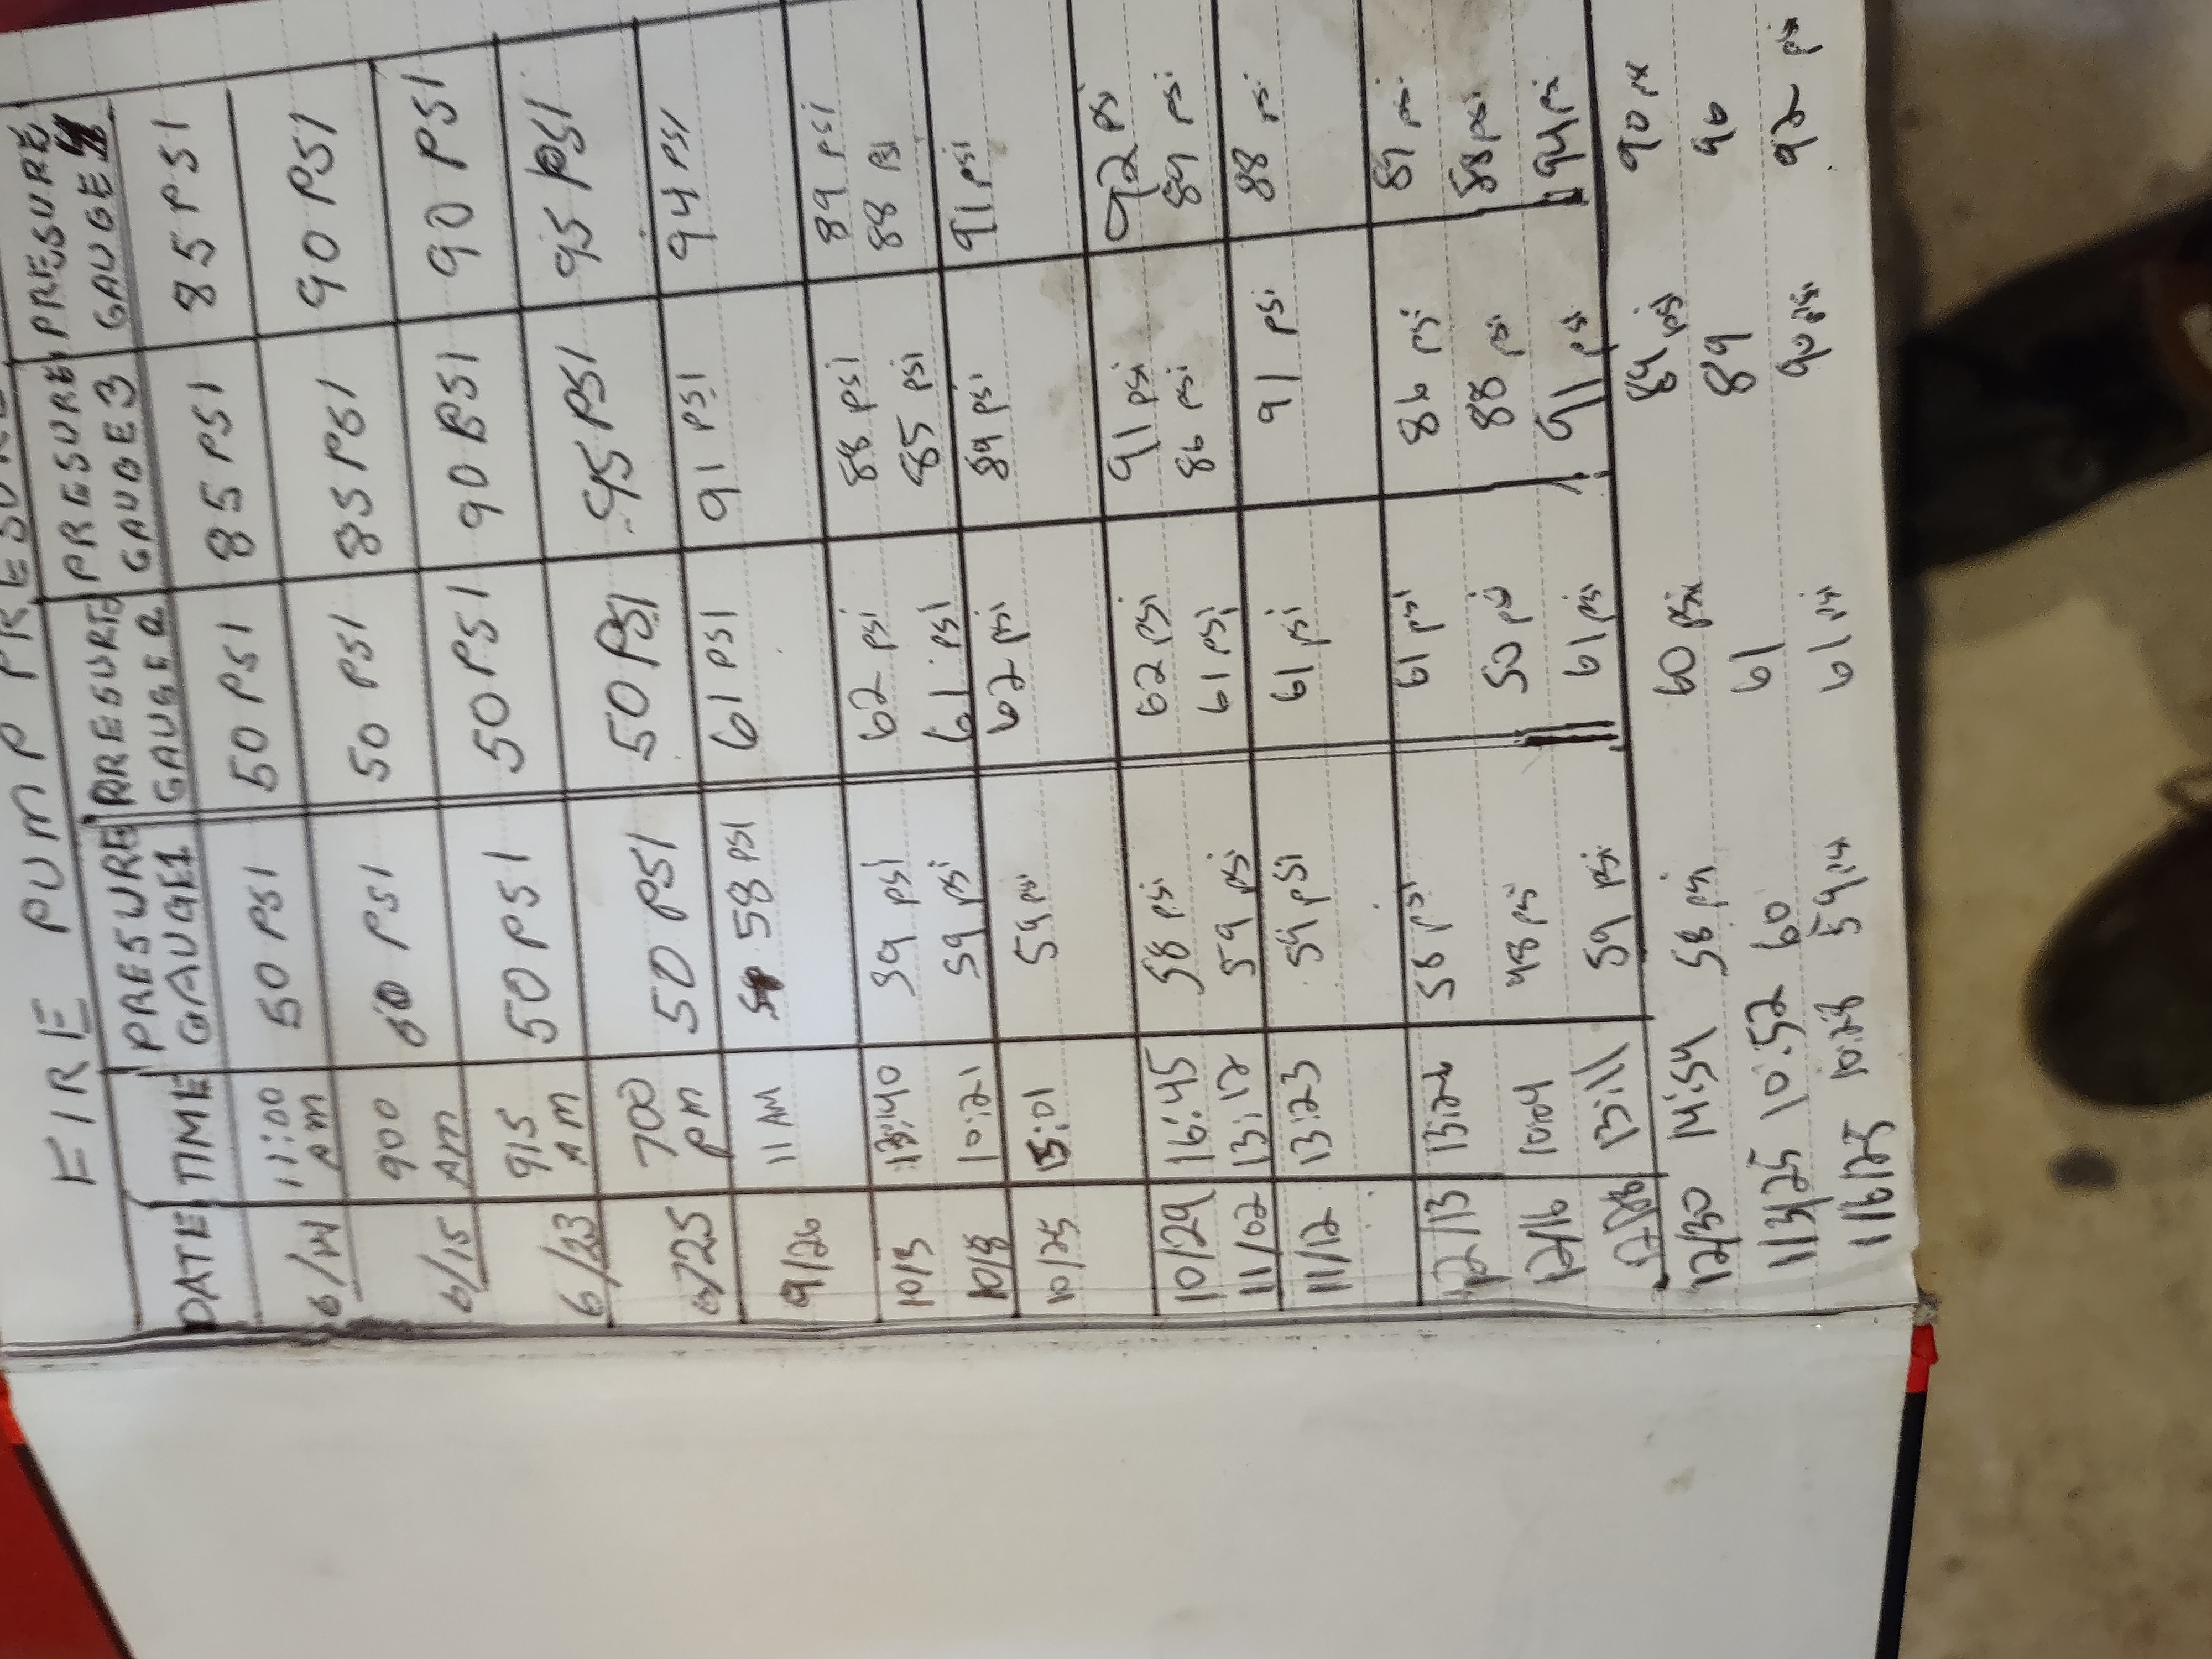 FIRE PUMP PRESURE
DATE TIME PRESURE GAUGE1 PRESURE GAUGE 2 PRESURE GAUGE 3 PRESURE GAUGE 4
6/14 11:00 AM 50 PSI 50 PSI 85 PSI 85 PSI
6/15 900 AM PSI 50 PSI 85 PSI 90 PSI
6/23 915 AM 50 PSI 50 PSI 90 PSI 90 PSI
6/25 700 PM 50 PSI 50 PSI 95 PSI 95 PSI
9/26 11 AM 58 PSI 61 PSI 91 PSI 94 PSI
10/3 13:40 59 psi 62 psi 88 psi 89 psi
10/8 10:21 59 psi 61 psi 85 psi 88 PSI
10/25 15:01 59 psi 62 psi 89 psi 91 psi
10/29 16:45 58 psi 62 psi 91 psi 92 psi
11/02 13:12 59 psi 61 psi 86 psi 89 psi
11/12 13:23 59 psi 61 psi 91 psi 88 psi
12/13 13:26 58 psi 61 psi 86 psi 89 psi
12/16 10:04 48 psi 50 psi 88 psi psi
12/28 13:11 59 psi 61 psi 91 psi 94 psi
12/30 14:54 58 psi 60 psi 89 psi 90 psi
1/3/25 10:52 60 61 89 90
1/6/25 10:28 59 psi 61 psi 90 psi 92 psi